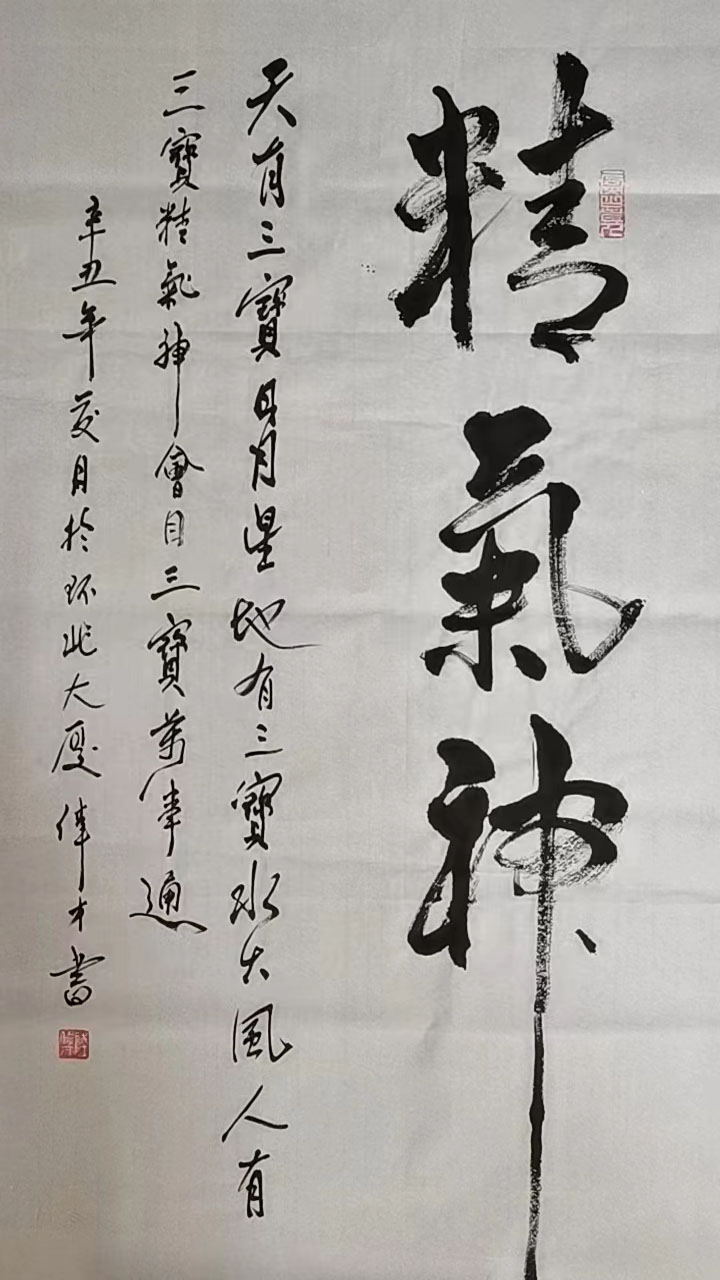 精氣神
天有三寶日月星地有三寶水火風人有
三寶精氣神會用三寶萬事通
辛丑年夏月於环北大厦偉才書